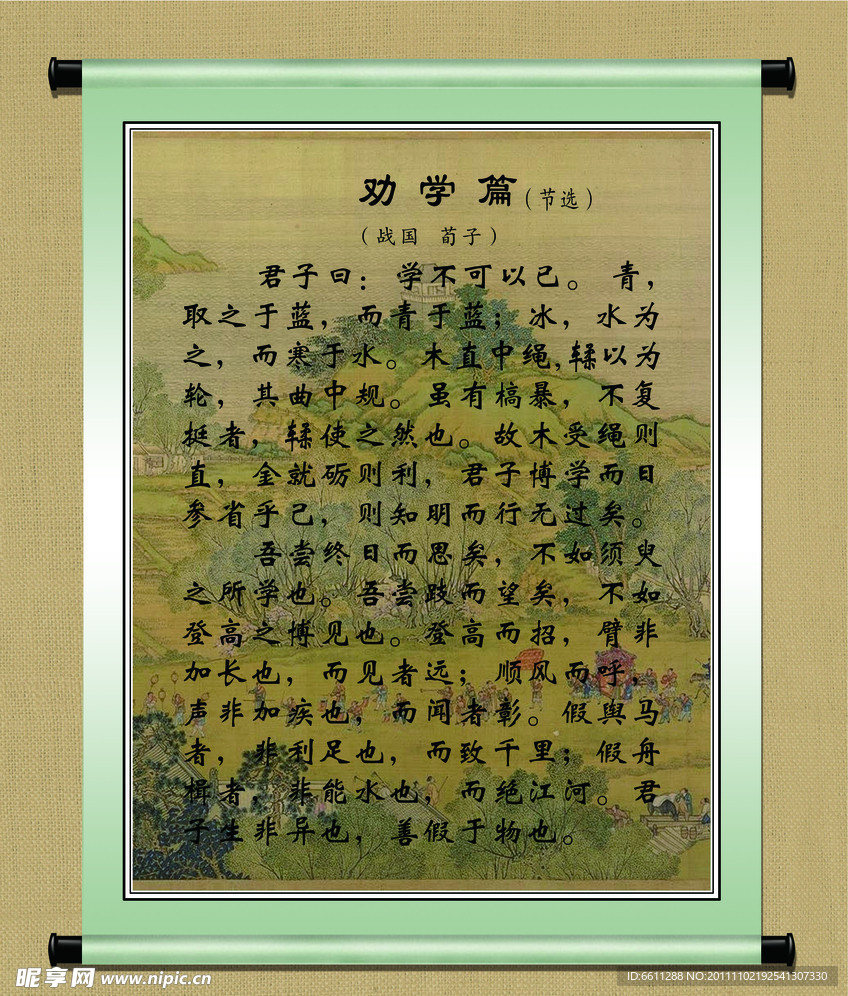 劝学篇(节选)
(战国 荀子)
君子曰：学不可以已。青，
取之于蓝，而青于蓝；冰，水为
之，而寒于水。木直中绳,輮以为
轮，其曲中规。虽有槁暴，不复
挺者，輮使之然也。故木受绳则
直，金就砺则利，君子博学而日
参省乎己，则知明而行无过矣。
吾尝终日而思矣，不如须臾
之所学也。吾尝跂而望矣，不如
登高之博见也。登高而招，臂非
加长也，而见者远；顺风而呼，
声非加疾也，而闻者彰。假舆马
者，非利足也，而致千里；假舟
楫者，非能水也，而绝江河。君
子生非异也，善假于物也。
昵享网 www.nipic.cn
ID:6611288 NO:20111102192541307330